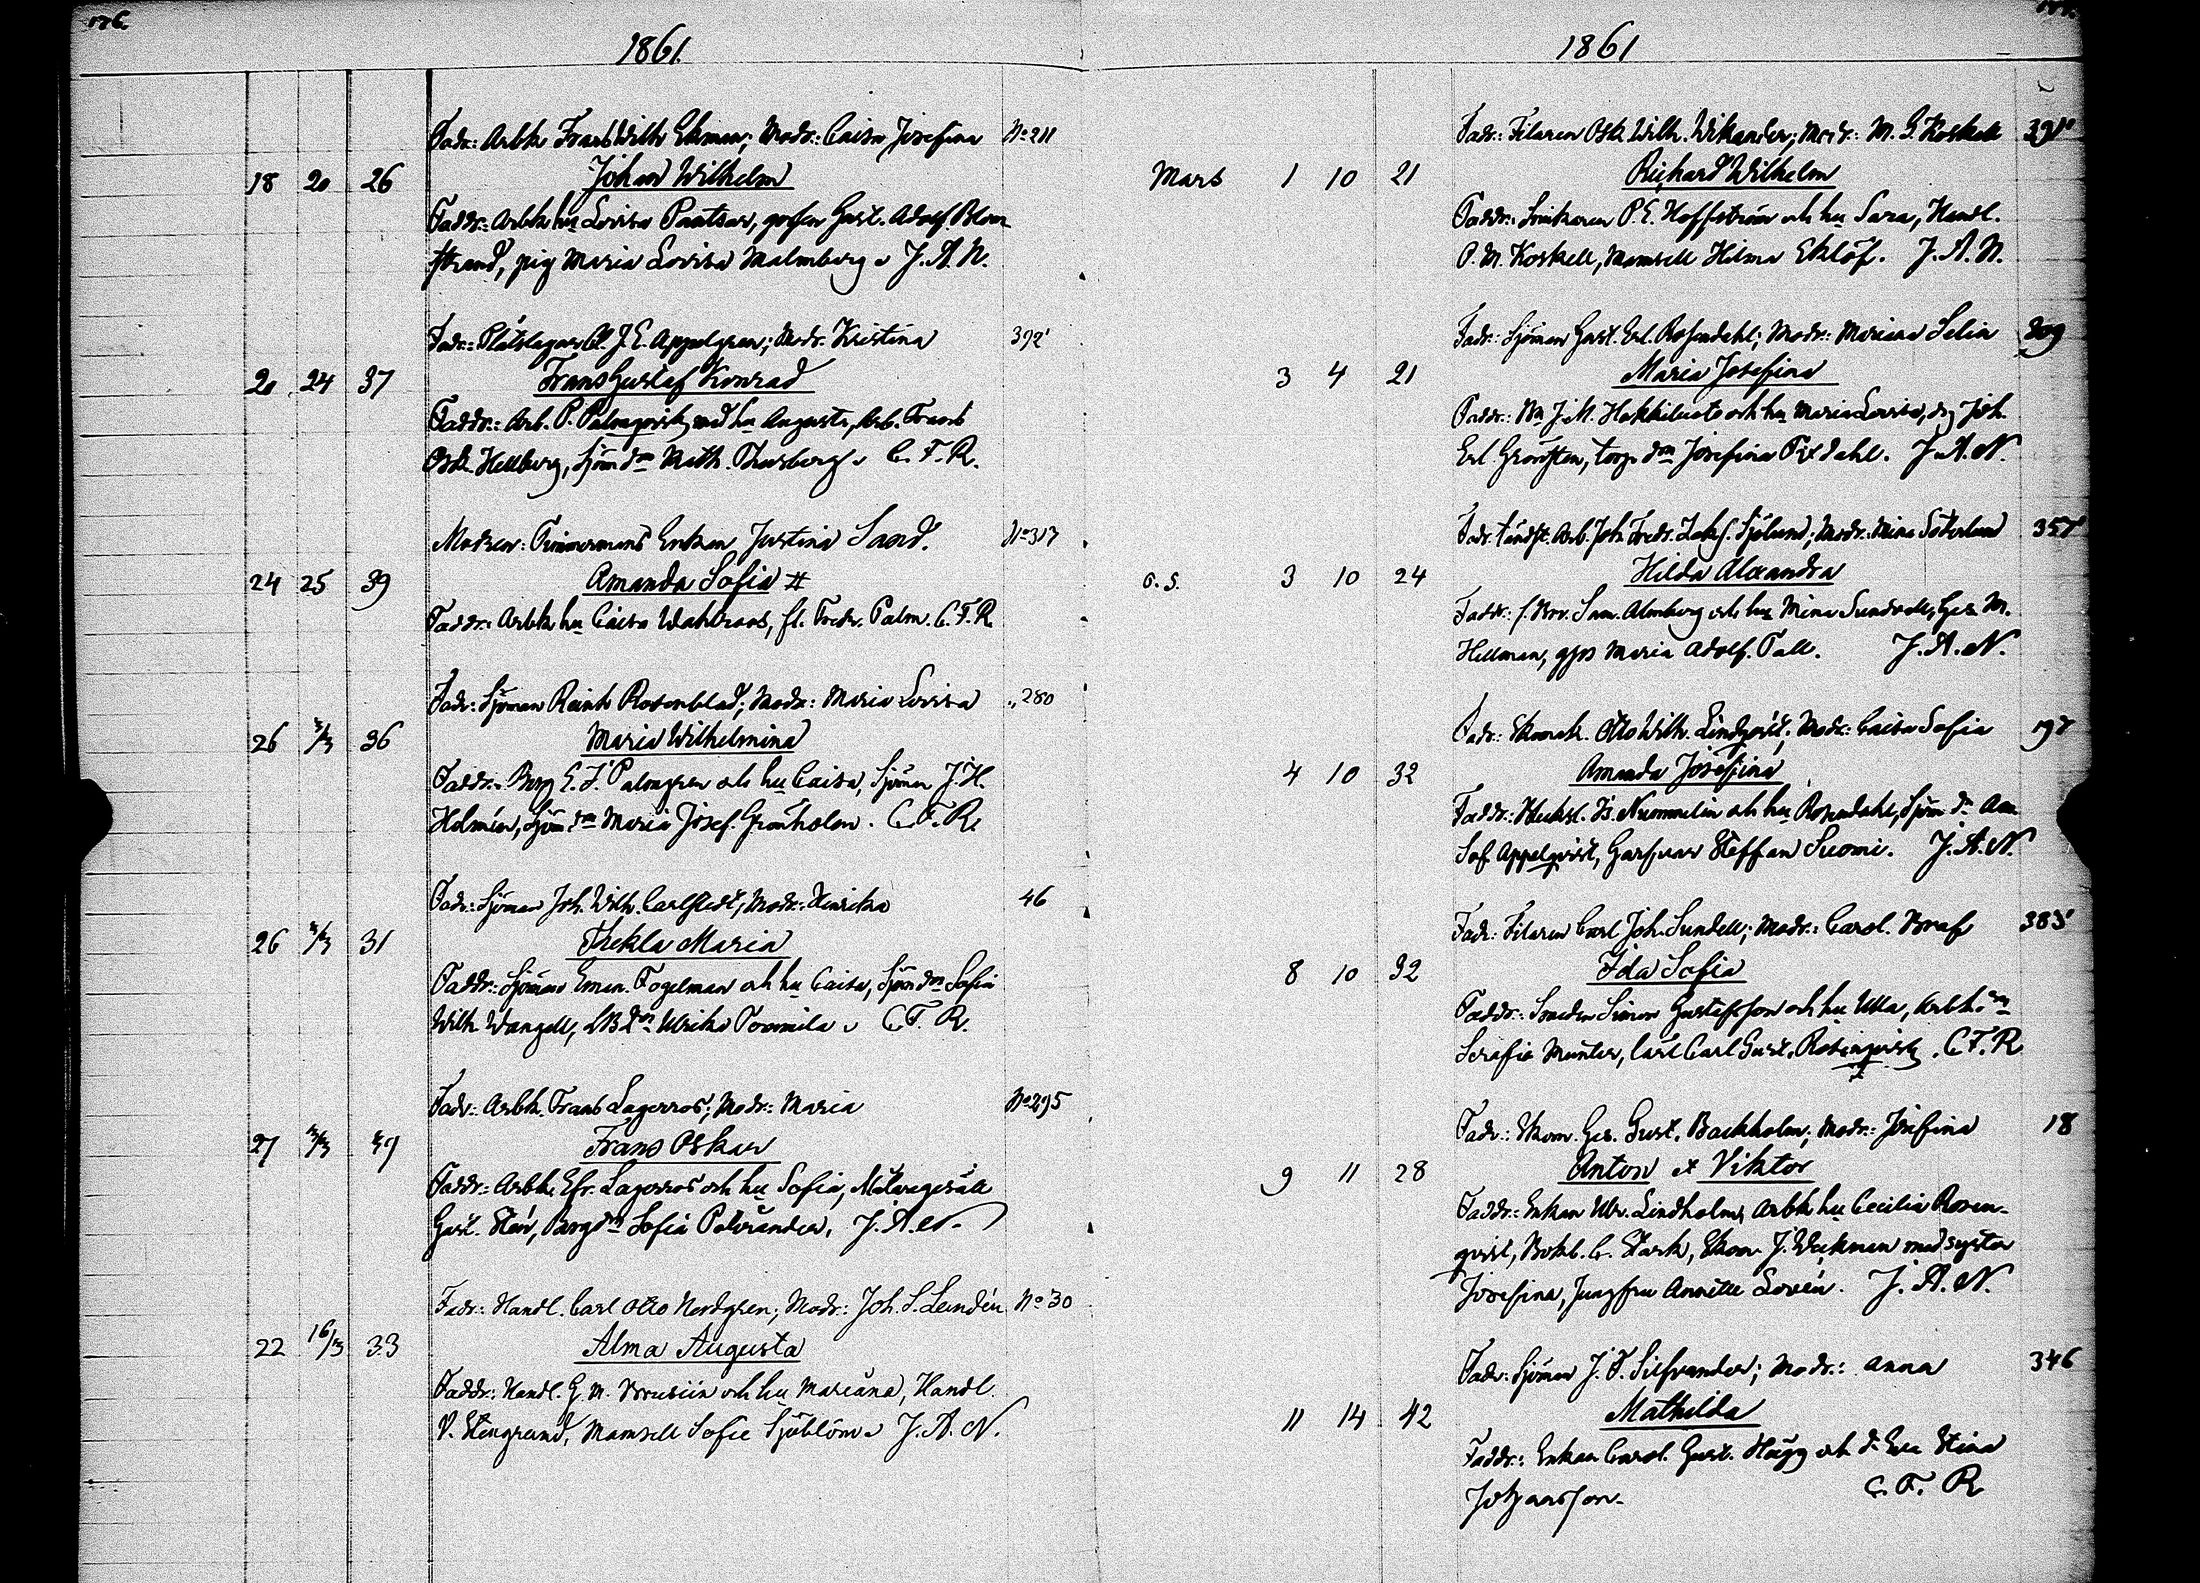 176.
1861.
Fadr: Arbk Frans Wilh Ekman; Modr: Caisa Josefina No 211
18 20 26 Johan Wilhelm
Faddr: Arbk hu Lovisa Pantsar, Gust. Adolf Blom
strand, pig Maria Lovisa Malmberg. J. A. N.
Fadr: Plåtslagar J. E. Appelgren; Modr. Kristina 392
20 24 37 Frans Gustaf Konrad
Faddr: Arb. P. Palmqvist med hu Augusta, Arb. Frans
Osk. Hellberg, Sjöm dn Math. Thorsberg. C. F. R.
Modren: Timmermans Enkan Justina Sand. No 317
24 25 39 Amanda Sofia #
Faddr: Arbk hu Caisa Wahlroos, fl. Fredr. Palm. C. F. R.
Fadr: Sjöman Reinh Rosenblad; Modr: Maria Lovisa „ 280
26 3/3 36 Maria Wilhelmina
Faddr: Borg E. F. Palmgren och hu Caisa, Sjöman J. H.
Holmén, Sjöm dn Maria Josef. Grönholm. C. F. R.
Fadr: Sjöman Joh. Wilh. Carlstedt; Modr: Henrika 46
26 3/3 31 Thekla Maria
Faddr: Sjöman Eman. Fogelman och hu Caisa, Sjöm dn Sofia
Wilh Wangell, Ulrika Toomila. C. F. R.
Fadr: Arbk. Frans Lagerros; Modr: Maria No 295
27 3/3 49 Frans Oskar
Faddr: Arbk. Efr. Lagerros och hu Sofia, Målaregesäll
Gust. Stén, Borg dn Sofia Polviander. J. A. N.
Fadr: Handl. Carl Otto Nordgren; Modr: Joh. S. Lundén No 30
22 16/3 33 Alma Augusta
Faddr: Handl. G. M. och hu Mariana, Handl.
V. Stengrund, Mamsell Sofie Sjöblom. J. A. N.
1861
Fadr: Filaren Osk. Wilh. Wikander; Modr: M. G. Koskell 391
Mars 1 10 21 Richard Wilhelm
Faddr: Snikaren P. E. Hoffström och hu Sara, Handl.
P. M. Koskell, Mamsell Hilma Eklöf. J. A. N.
Fadr: Sjöman Gust. Erl. Rosendahl; Modr: Mariana Selin 309
3 4 21 Maria Josefina
Faddr: J. M. och hu Maria Lovisa, dg Joh.
Erl Grönsten, torp. dn Josefina Fixdahl. J. A. N.
Fadr. Arb. Joh. Fredr. Sjölund; Modr: Mina Söderlund 357
G. S. 3 10 24 Hilda Alexandra
Faddr: f. Brv. Sam. Almberg och hu Mina Sundvall, Ges. M.
Hellman, Maria Adolf. Fall. J. A. N.
Fadr: Skomak. Otto Wilh. Lindqvist; Modr: Caisa Sofia 197
4 10 32 Amanda Josefina
Faddr: Is. Nummelin och hu Rosendahl, Sjöm dn Am
Sof Appelqvist, Garfvar Steffan Suomi. J. A. N.
Fadr: Filaren Carl Joh. Sundell; Modr: Carol. Braf 385
8 10 32 Ida Sofia
Faddr: Smeden Simon Gustafsson och hu Ulla, Arbk. dn
Serafia Munter, Carl Gust. Rosenqvist. C. F. R.
Fadr: Skom. Ges. Gust. Backholm; Modr: Josefina 18
9 11 28 Anton & Viktor
Faddr: Enkan Ulr. Lindholm, Arbk hu Cecilia Rosen-
qvist, Bokb. C. Stark, Skom. J. Weckman med syster
Josefina, Jungfru Annette Lovén. J. A. N.
Fadr: Sjöman J. F. Silfvander; Modr: Anna 346
11 14 42 Mathilda
Faddr: Enkan Carol. Gust. Hägg och d. Eva Stina
Johansson. C. F. R